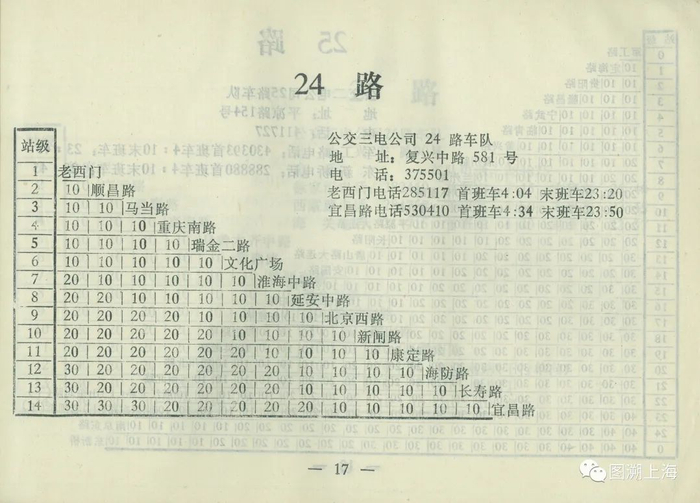 24 路
公交三电公司 24 路车队
地 址:复兴中路 581 号
电 话:375501
老西门电话285117 首班车4:04 末班车23:20
宜昌路电话530410 首班车4:34 末班车23:50
站级
1 老西门
2 10 顺昌路
3 10 10 马当路
4 10 10 10 重庆南路
5 10 10 10 10 瑞金二路
6 10 10 10 10 10 文化广场
7 20 10 10 10 10 10 淮海中路
8 20 20 10 10 10 10 10 延安中路
9 20 20 20 10 10 10 10 10 北京西路
10 20 20 20 20 20 10 10 10 10 新闸路
11 20 20 20 20 20 20 10 10 10 10 康定路
12 30 20 20 20 20 20 20 10 10 10 10 海防路
13 30 20 20 20 20 20 20 10 10 10 10 10 长寿路
14 30 30 30 20 20 20 20 20 10 10 10 10 10 宜昌路
— 17 —
图溯上海